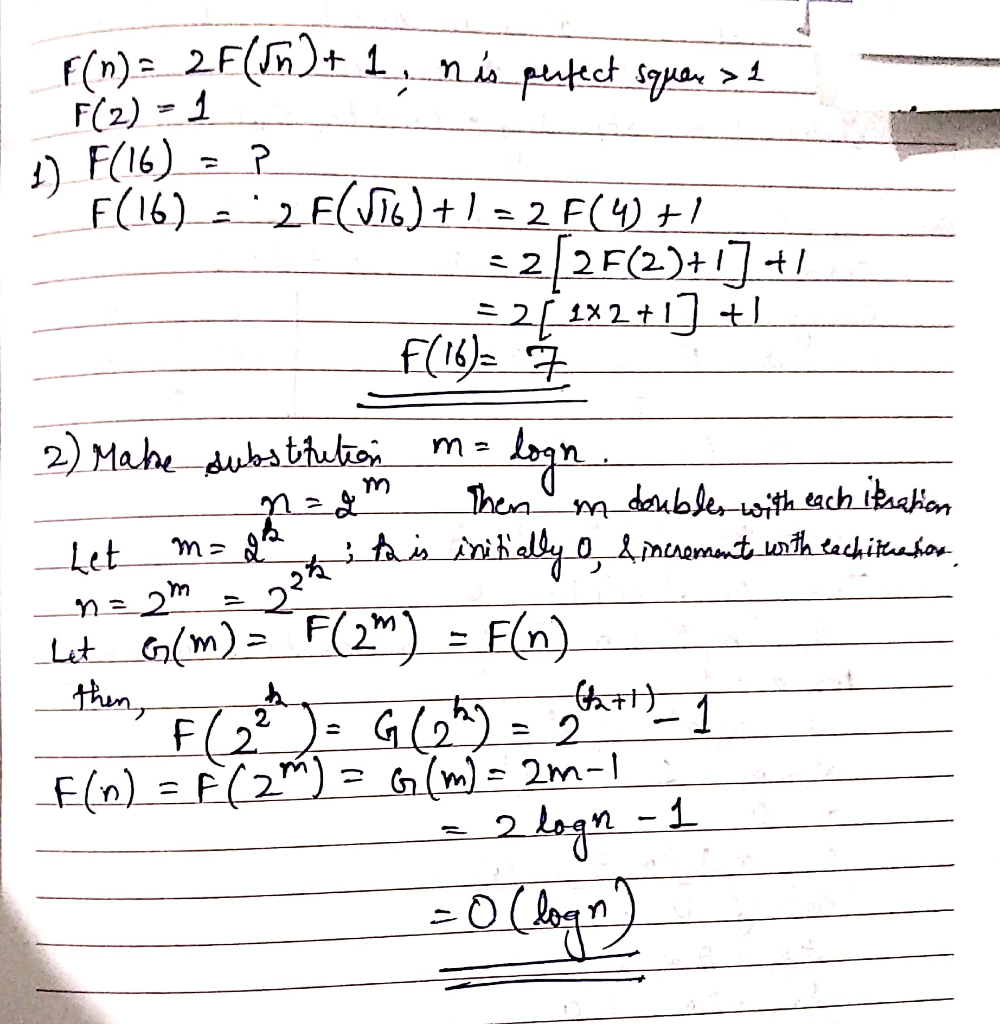 F(n) = 2F(√n) + 1, n is perfect square > 1
F(2) = 1
1) F(16) = ?
F(16) = 2F(√16) + 1 = 2F(4) + 1
= 2[2F(2)+1] + 1
= 2[1×2+1] + 1
F(16) = 7
2) Make substitution m = logn.
n = 2^m Then m doubles with each iteration
Let m = 2^k ; k is initially 0, & increments with each iteration.
n = 2^m = 2^2^k
Let G(m) = F(2^m) = F(n)
then,
F(2^2^k) = G(2^k) = 2^(k+1) - 1
F(n) = F(2^m) = G(m) = 2m-1
= 2 logn - 1
= O(logn)